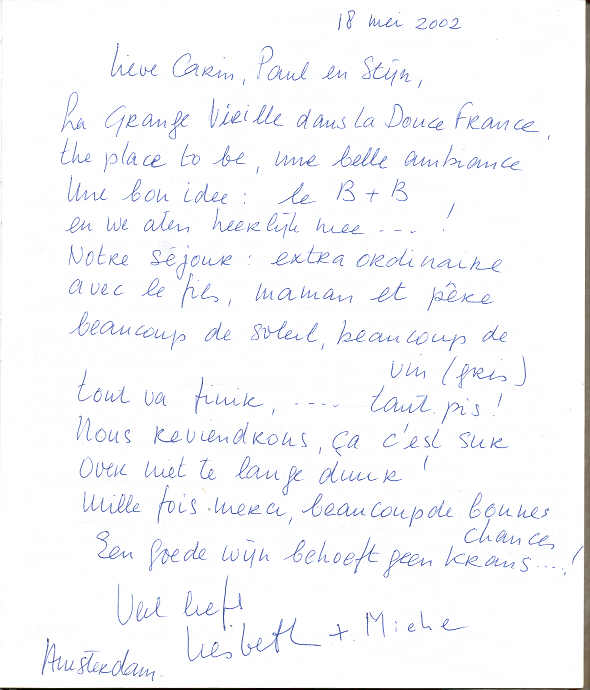 18 mei 2002
Lieve Carin, Paul en Stijn,
La Grange Vieille dans la Douce France,
the place to be, une belle ambiance
Une bon idee : le B + B
en we aten heerlijk mee ---- !
Notre séjour : extra ordinaire
avec le fils, maman et pêre
beaucoup de soleil, beaucoup de
vin (gris)
tout va finir, .... tant pis !
Nous reviendrons, ça c'est sur
Over niet te lange duur !
Mille fois merci, beaucoup de bonnes
chances
Een goede wijn behoeft geen krans ....!
Veel liefs
Liesbeth + Michel
Amsterdam.